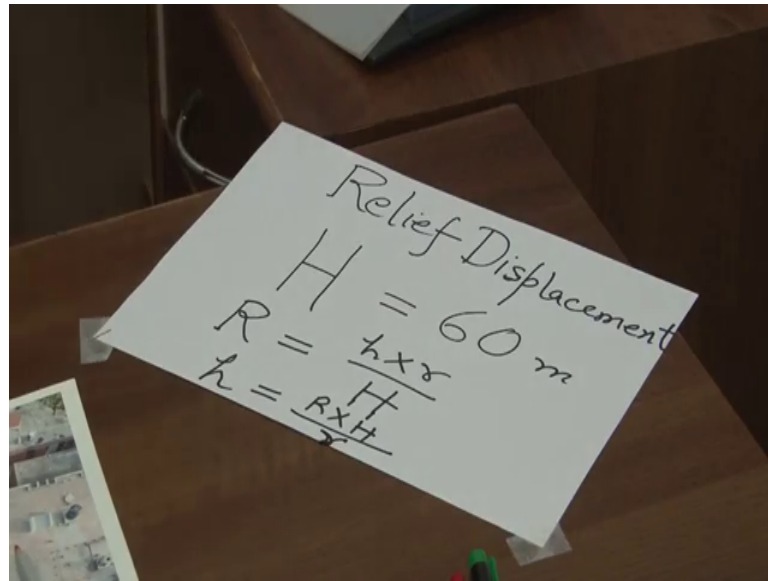 Relief Displacement
H = 60 m
R = h×r/H
h = R×H/r